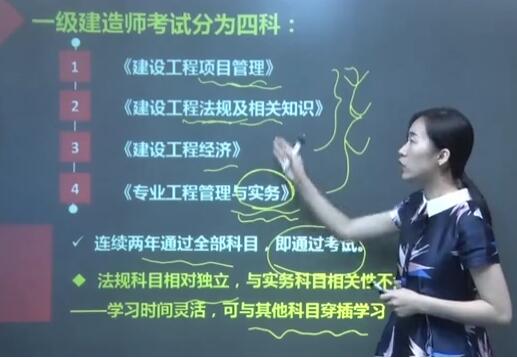 一级建造师考试分为四科：
1 《建设工程项目管理》
2 《建设工程法规及相关知识》
3 《建设工程经济》
4 《专业工程管理与实务》
✓ 连续两年通过全部科目，即通过考试。
◆ 法规科目相对独立，与实务科目相关性不
——学习时间灵活，可与其他科目穿插学习